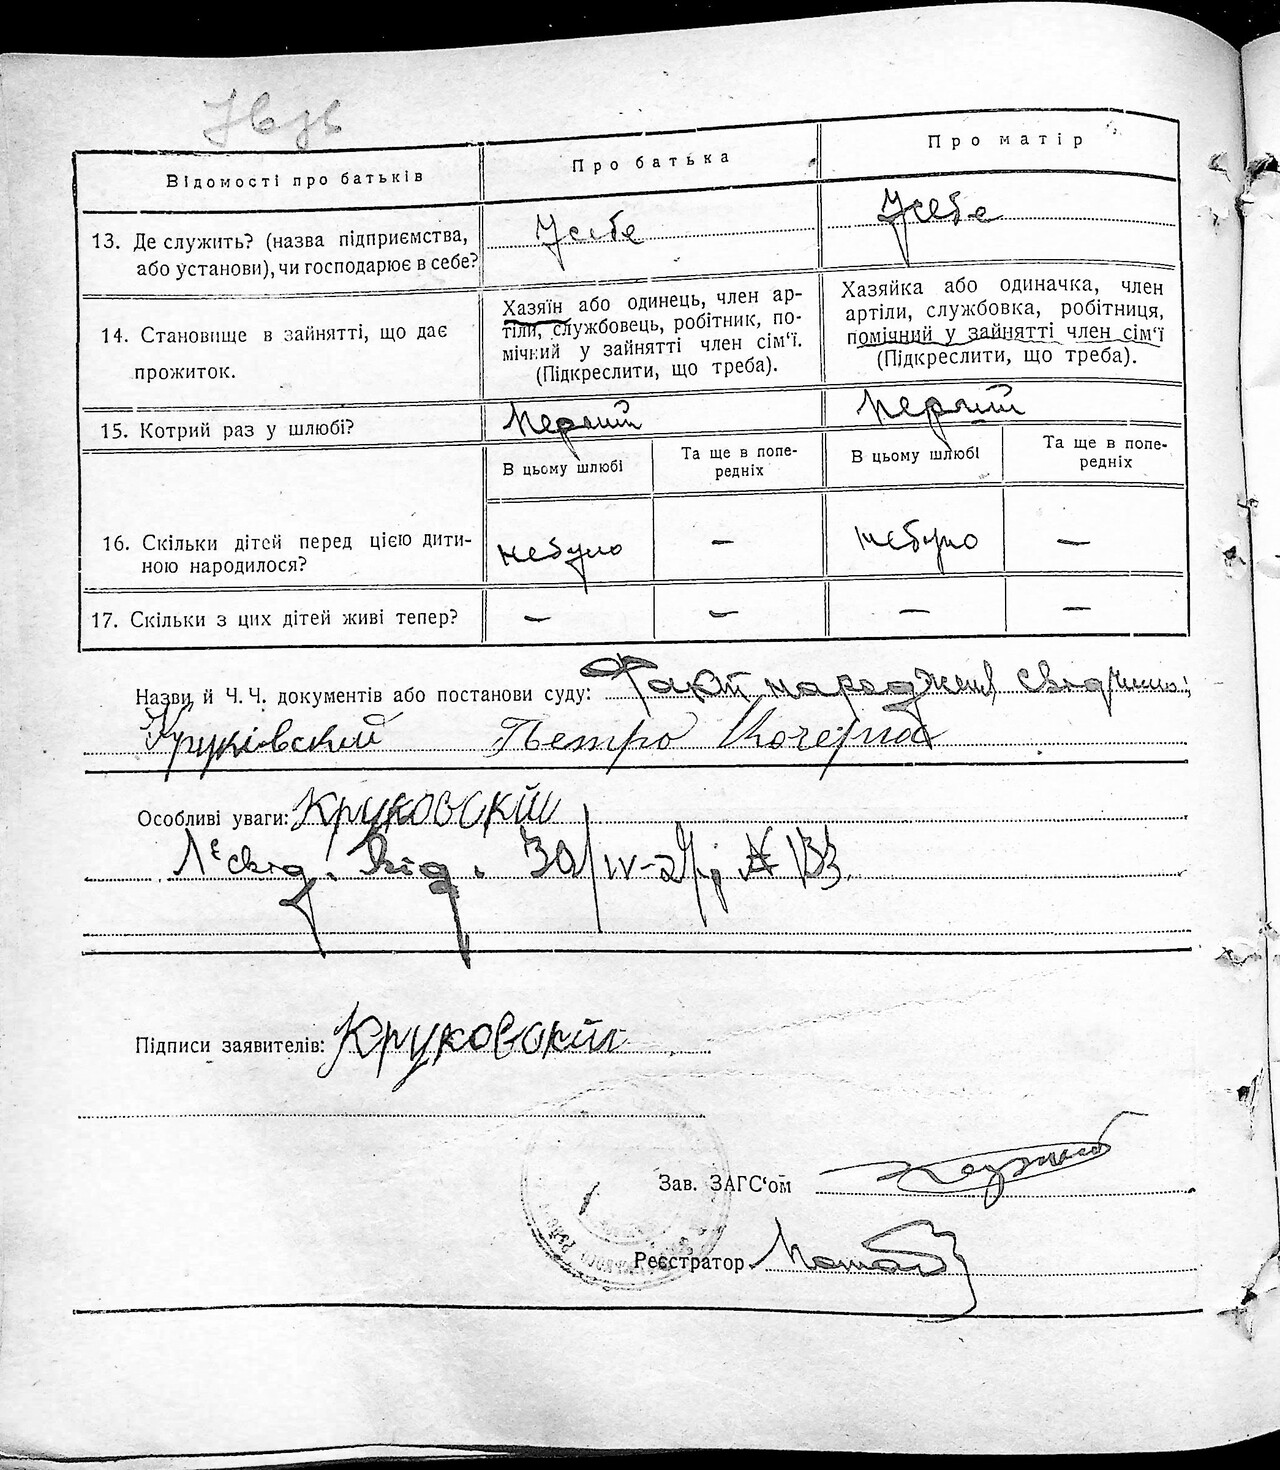 Відомості про батьків
Про батька
Про матір
13. Де служить? (назва підприємства,
або установи), чи господарює в себе?
Усебе
Усебе
14. Становище в зайнятті, що дає
прожиток.
Хазяїн або одинець, член ар-
тіли, службовець, робітник, по-
мічний у зайнятті член сім'ї.
(Підкреслити, що треба).
Хазяйка або одиначка, член
артіли, службовка, робітниця,
помічний у зайнятті член сім'ї
(Підкреслити, що треба).
15. Котрий раз у шлюбі?
Перший
Перший
В цьому шлюбі
Та ще в попе-
редніх
В цьому шлюбі
Та ще в попе-
редніх
16. Скільки дітей перед цією дити-
ною народилося?
небуло
—
небуло
—
17. Скільки з цих дітей живі тепер?
—
—
—
—
Назви й Ч. Ч. документів або постанови суду: Факт народження
Круковский Петро Кочерга
Особливі уваги: Круковскій
свід. від. 30/IV-29р № 133
Підписи заявителів: Круковскій
Зав. ЗАГС'ом
Реєстратор